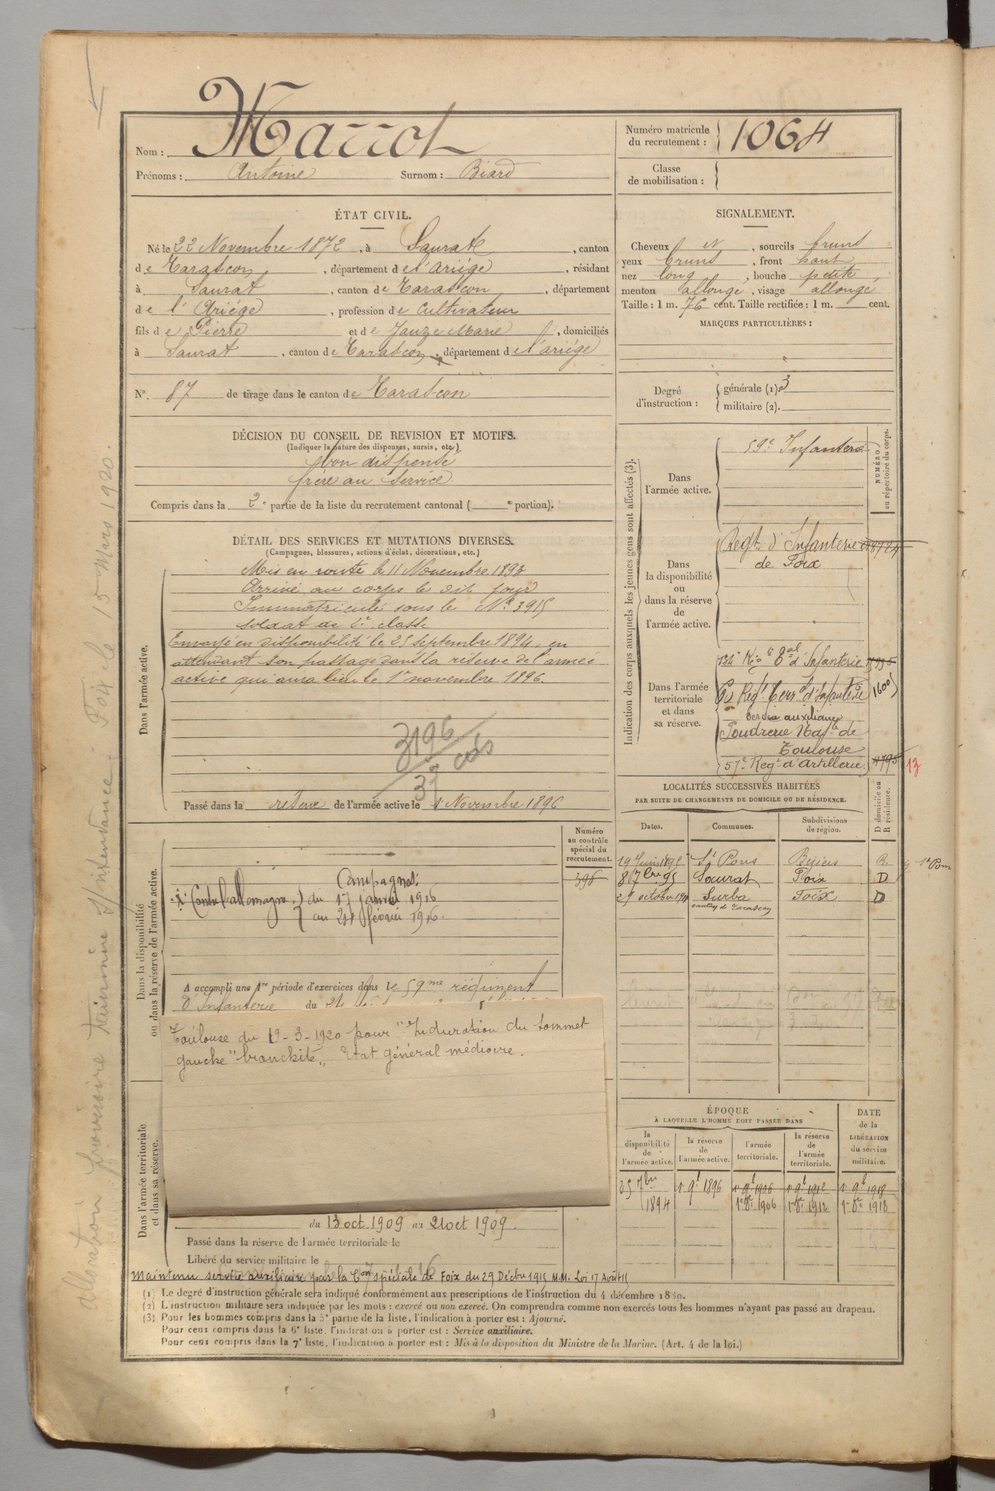 Nom : Marrot
Prénoms : Antoine Surnom : Biard
Numéro matricule du recrutement : 1064
Classe de mobilisation :
ÉTAT CIVIL.
Né le 22 Novembre 1872, à Saurat, canton
de Tarascon, département de l'Ariège, résidant
à Saurat, canton de Tarascon, département
de l'Ariège, profession de cultivateur
fils de Pierre et de Jauze Marie, domiciliés
à Saurat, canton de Tarascon, département de l'ariège
N° 87 de tirage dans le canton de Tarascon
SIGNALEMENT.
Cheveux et, sourcils bruns
yeux bruns, front haut
nez long, bouche petite
menton allongé, visage allongé
Taille : 1 m. 76 cent. Taille rectifiée : 1 m. cent.
MARQUES PARTICULIÈRES :
Degré d'instruction : générale (1) 3
militaire (2).
DÉCISION DU CONSEIL DE REVISION ET MOTIFS.
(Indiquer la nature des dispenses, sursis, etc.)
bon dispensé
frère au service
Compris dans la 2e partie de la liste du recrutement cantonal ( e portion).
DÉTAIL DES SERVICES ET MUTATIONS DIVERSES.
(Campagnes, blessures, actions d'éclat, décorations, etc.)
Dans l'armée active.
Mis en route le 11 Novembre 1893
Arrivé au corps le dit jour
Immatriculé sous le N° 3915
soldat de 2e classe
Envoyé en disponibilité le 25 septembre 1894, en
attendant son passage dans la réserve de l'armée
active qui aura lieu le 1er novembre 1896.
3196
37
Passé dans la réserve de l'armée active le 1 Novembre 1896
Indication des corps auxquels les jeunes gens sont affectés (3).
NUMÉRO au répertoire du corps.
Dans l'armée active.
59e Infanterie
Dans la disponibilité ou dans la réserve de l'armée active.
Régt d'Infanterie
de Foix
Dans l'armée territoriale et dans sa réserve.
134e Rég t Eal d'Infanterie
Rég t Terr al d'Infanterie 1600
Service auxiliaire
Poudrerie Nale de
Toulouse
57e Régt d'Artillerie
13
LOCALITÉS SUCCESSIVES HABITÉES
PAR SUITE DE CHANGEMENTS DE DOMICILE OU DE RÉSIDENCE.
Dates. Communes. Subdivisions de région. D domicile ou R résidence.
19 Juin 1895 St Pons Béziers R
8 7bre 95 Saurat Foix D
27 octobre Surba Foix D
canton de Tarascon
Dans la disponibilité ou dans la réserve de l'armée active.
Numéro au contrôle spécial du recrutement.
396
Campagnes:
Contre l'allemagne. du 17 janvier 1916
au 24 février 1916.
A accompli une 1re période d'exercices dans le 59me régiment
d'Infanterie du 21
Toulouse du 19-3-1920 pour "Induration du sommet
gauche" bronchite,, Etat général médiocre.
Dans l'armée territoriale et dans sa réserve.
du 13 oct. 1909 au 21 oct 1909.
Passé dans la réserve de l'armée territoriale le
Libéré du service militaire le
Maintenu service auxiliaire par la Con spéciale de Foix du 29 Décbre 1915 Loi 17 Août 15
ÉPOQUE
À LAQUELLE L'HOMME DOIT PASSER DANS
DATE de la LIBÉRATION du service militaire.
la disponibilité de l'armée active. la réserve de l'armée active. l'armée territoriale. la réserve de l'armée territoriale.
25 7bre 1894 1er 9e 1896 1er 9e 1906 1er 9e 1912 1er 9e 1919
1er 8e 1906 1er 8e 1912 1er 8e 1918
(1) Le degré d'instruction générale sera indiqué conformément aux prescriptions de l'instruction du 4 décembre 1889.
(2) L'instruction militaire sera indiquée par les mots : exercé ou non exercé. On comprendra comme non exercés tous les hommes n'ayant pas passé au drapeau.
(3) Pour les hommes compris dans la 5e partie de la liste, l'indication à porter est : Ajourné.
Pour ceux compris dans la 6e liste, l'indication à porter est : Service auxiliaire.
Pour ceux compris dans la 7e liste, l'indication à porter est : Mis à la disposition du Ministre de la Marine. (Art. 4 de la loi.)
allocation provisoire Intendance. Foix le 15 Mars 1920.